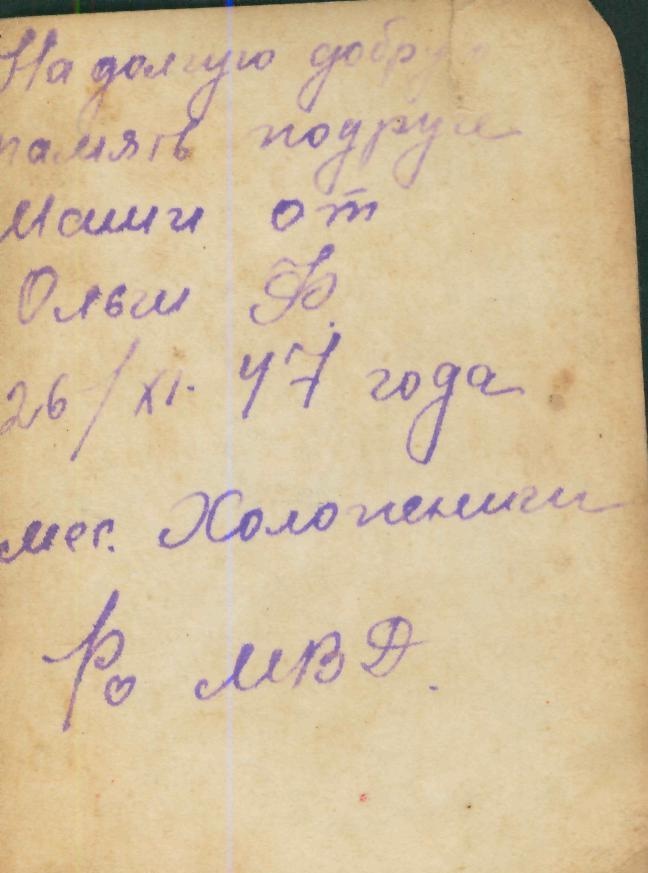 На долгую добрую
память подруге
Маши от
Ольги Ф.
26/XI. 47 года
мес. Холопеничи
Ро МВД.